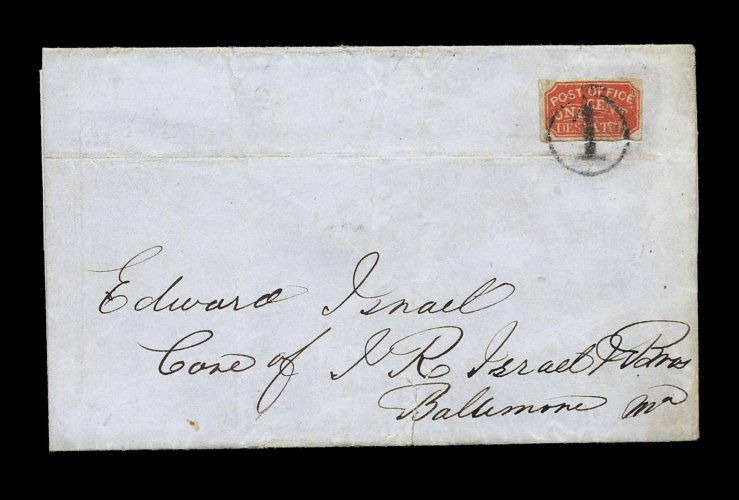 POST OFFICE
ONE CENT
DESPATCH
1
Edward Israel
Care of I R Israel & Bros
Baltimore Md